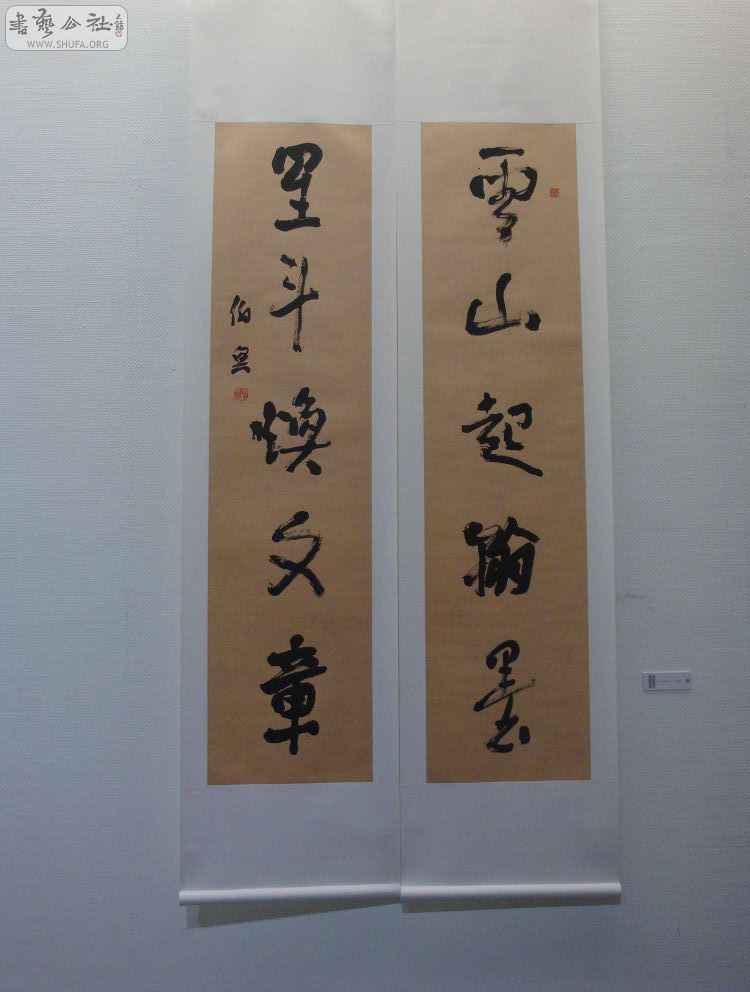 書藝公社
WWW.SHUFA.ORG
雲山起翰墨
星斗煥文章